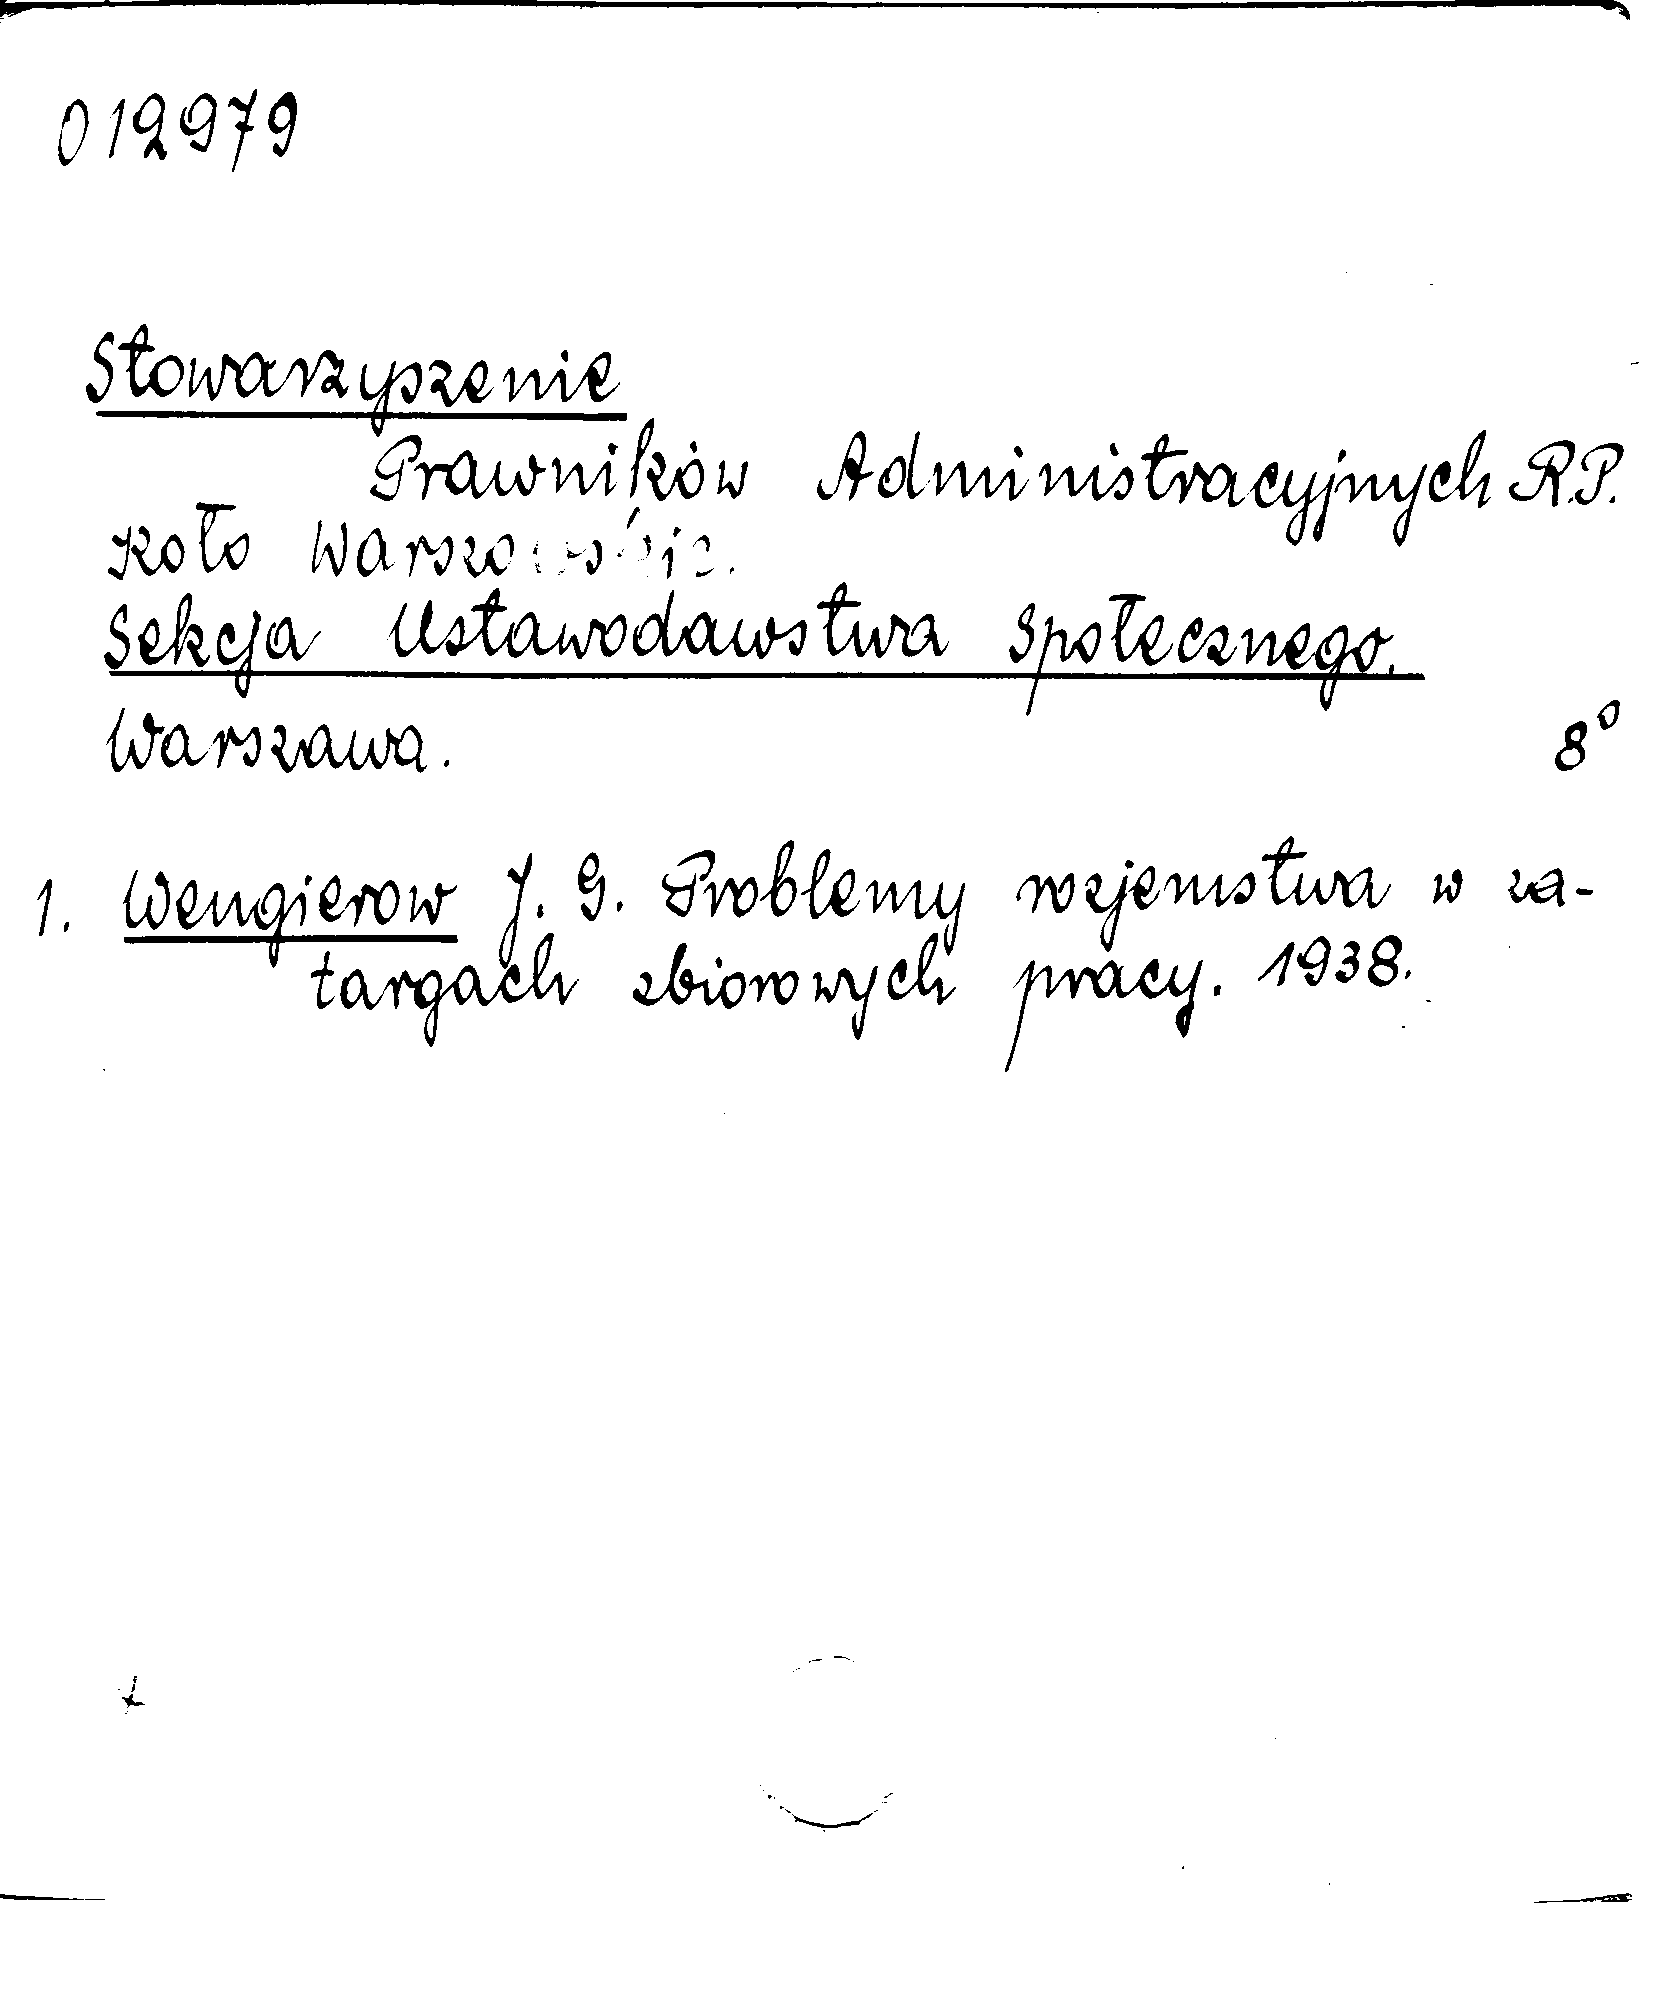 012979
Stowarzyszenie
Prawników Administracyjnych R.P.
Koło Warszawskie.
Sekcja Ustawodawstwa Społecznego.
Warszawa. 8°
1. Wengierow J. G. Problemy rozjemstwa w za-
targach zbiorowych pracy. 1938.